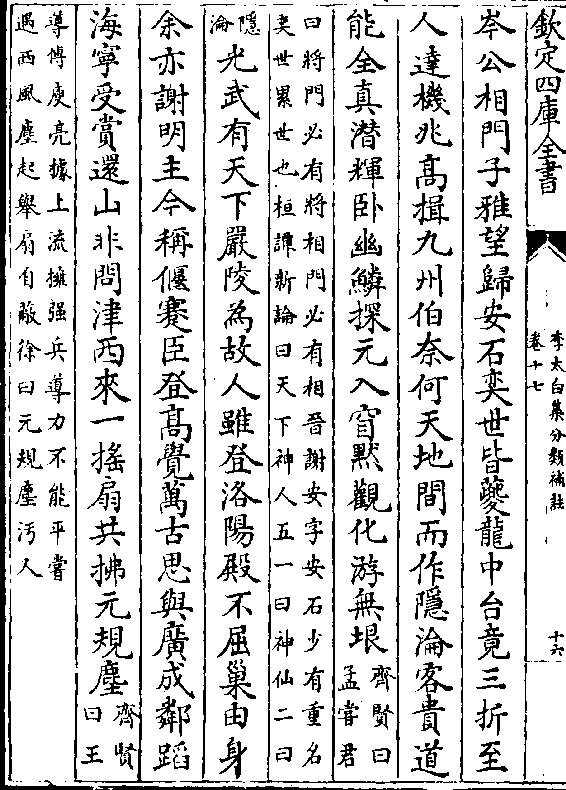 欽定四庫全書
李太白集分類補註
卷十七
十六
岑公相門子雅望歸安石奕世皆夔龍中台竟三折至
人達機兆高揖九州伯奈何天地間而作隱淪客貴道
能全真潜輝卧幽鱗探元入窅黙觀化游無垠齊賢曰孟嘗君
曰將門必有將相門必有相晉謝安字安石少有重名
奕世累世也桓譚新論曰天下神人五一曰神仙二曰
隱淪光武有天下嚴陵為故人雖登洛陽殿不屈巢由身
余亦謝明主今稱偃蹇臣登高覽萬古思與廣成鄰蹈
海寧受賞還山非問津西來一搖扇共拂元規塵齊賢曰王
導傳庾亮據上流擁强兵導力不能平嘗
遇西風塵起舉扇自蔽徐曰元規塵汚人